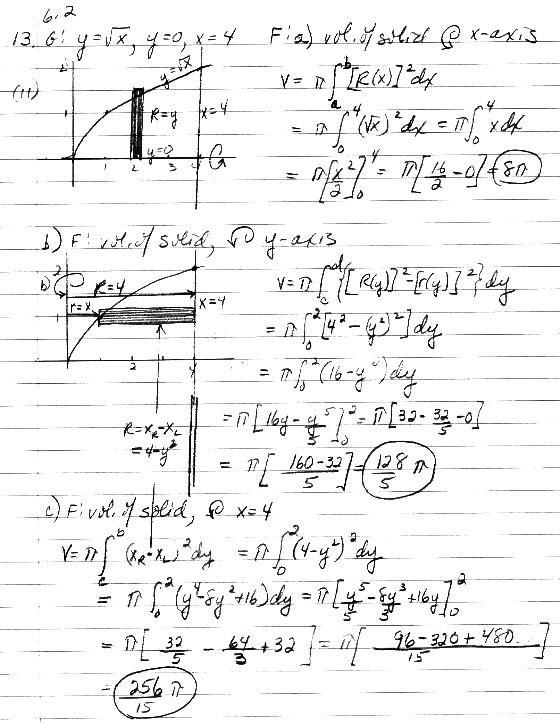 6.2
13. G: y=√x, y=0, x=4 F: a) vol. of solid @ x-axis
(11) 2 y=√x R=y x=4 y=0 1 2 3 4
V = π∫ₐᵇ[R(x)]²dx
= π∫₀⁴(√x)²dx = π∫₀⁴xdx
= π[x²/2]₀⁴ = π[16/2 - 0] = 8π
b) F: vol. of solid, y-axis
b) 2 R=4 r=x x=4 1 2 4
V = π∫_c^d{[R(y)]²-[r(y)]²}dy
= π∫₀²[4²-(y²)²]dy
= π∫₀²(16-y⁴)dy
= π[16y - y⁵/5]₀² = π[32 - 32/5 - 0]
= π[(160-32)/5] = 128/5 π
R = x_R - x_L
= 4-y²
c) F: vol. of solid, @ x=4
V = π∫_c^b(x_R - x_L)²dy = π∫₀²(4-y²)²dy
= π∫₀²(y⁴-8y²+16)dy = π[y⁵/5 - 8y³/3 + 16y]₀²
= π[32/5 - 64/3 + 32] = π[(96-320+480)/15]
= 256/15 π